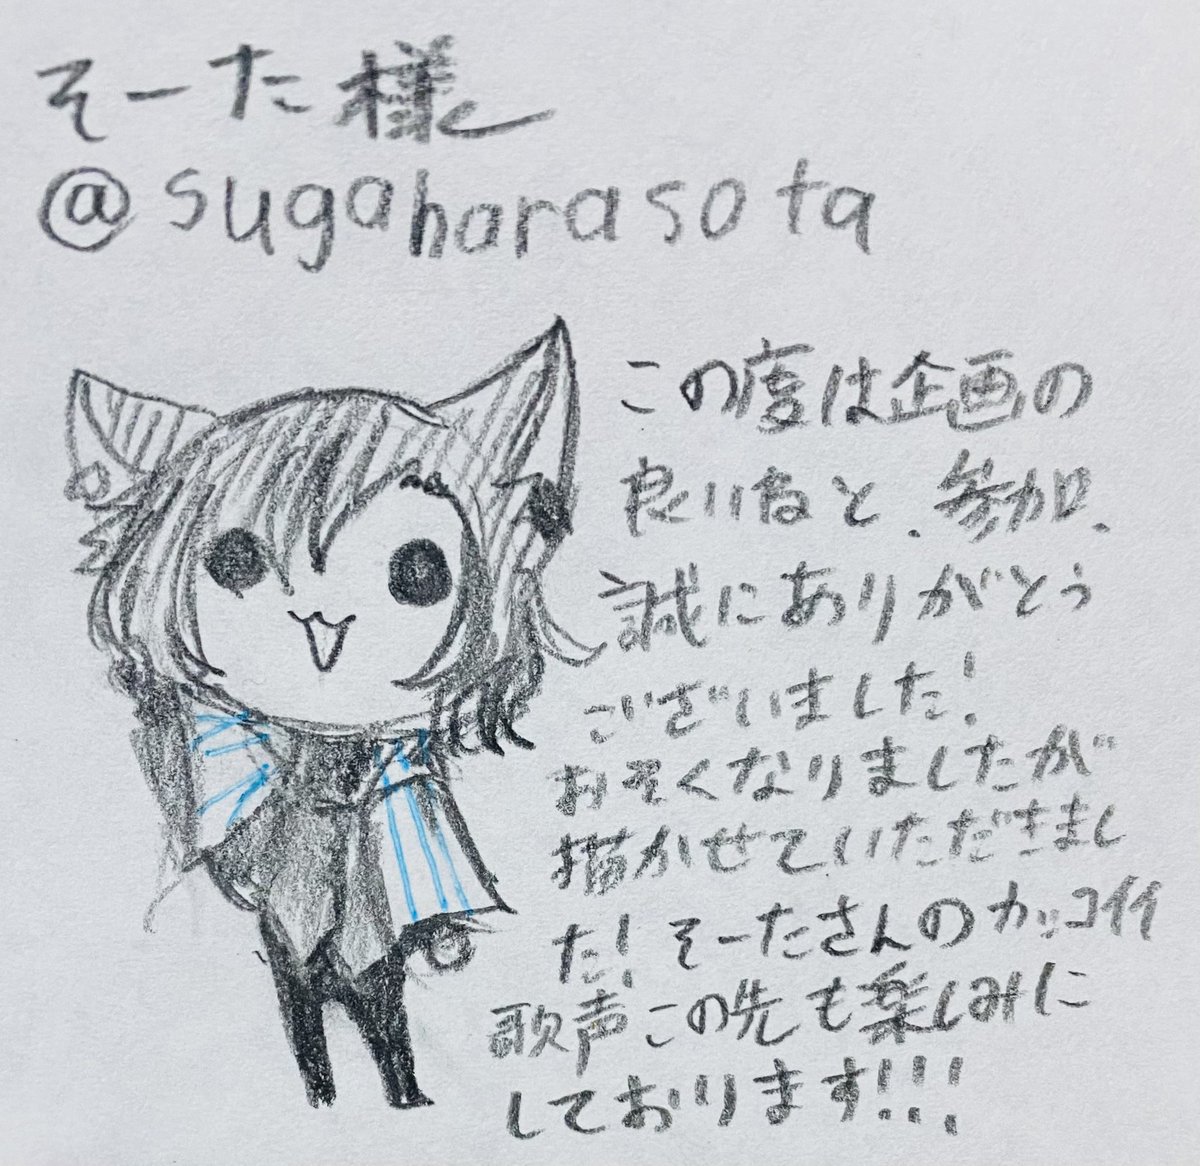 そーた様
@sugaharasota
この度は企画の
良いねと、参加、
誠にありがとう
ございました!
おそくなりましたが
描かせていただきまし
た! そーたさんのカッコイイ
歌声この先も楽しみに
しております!!!